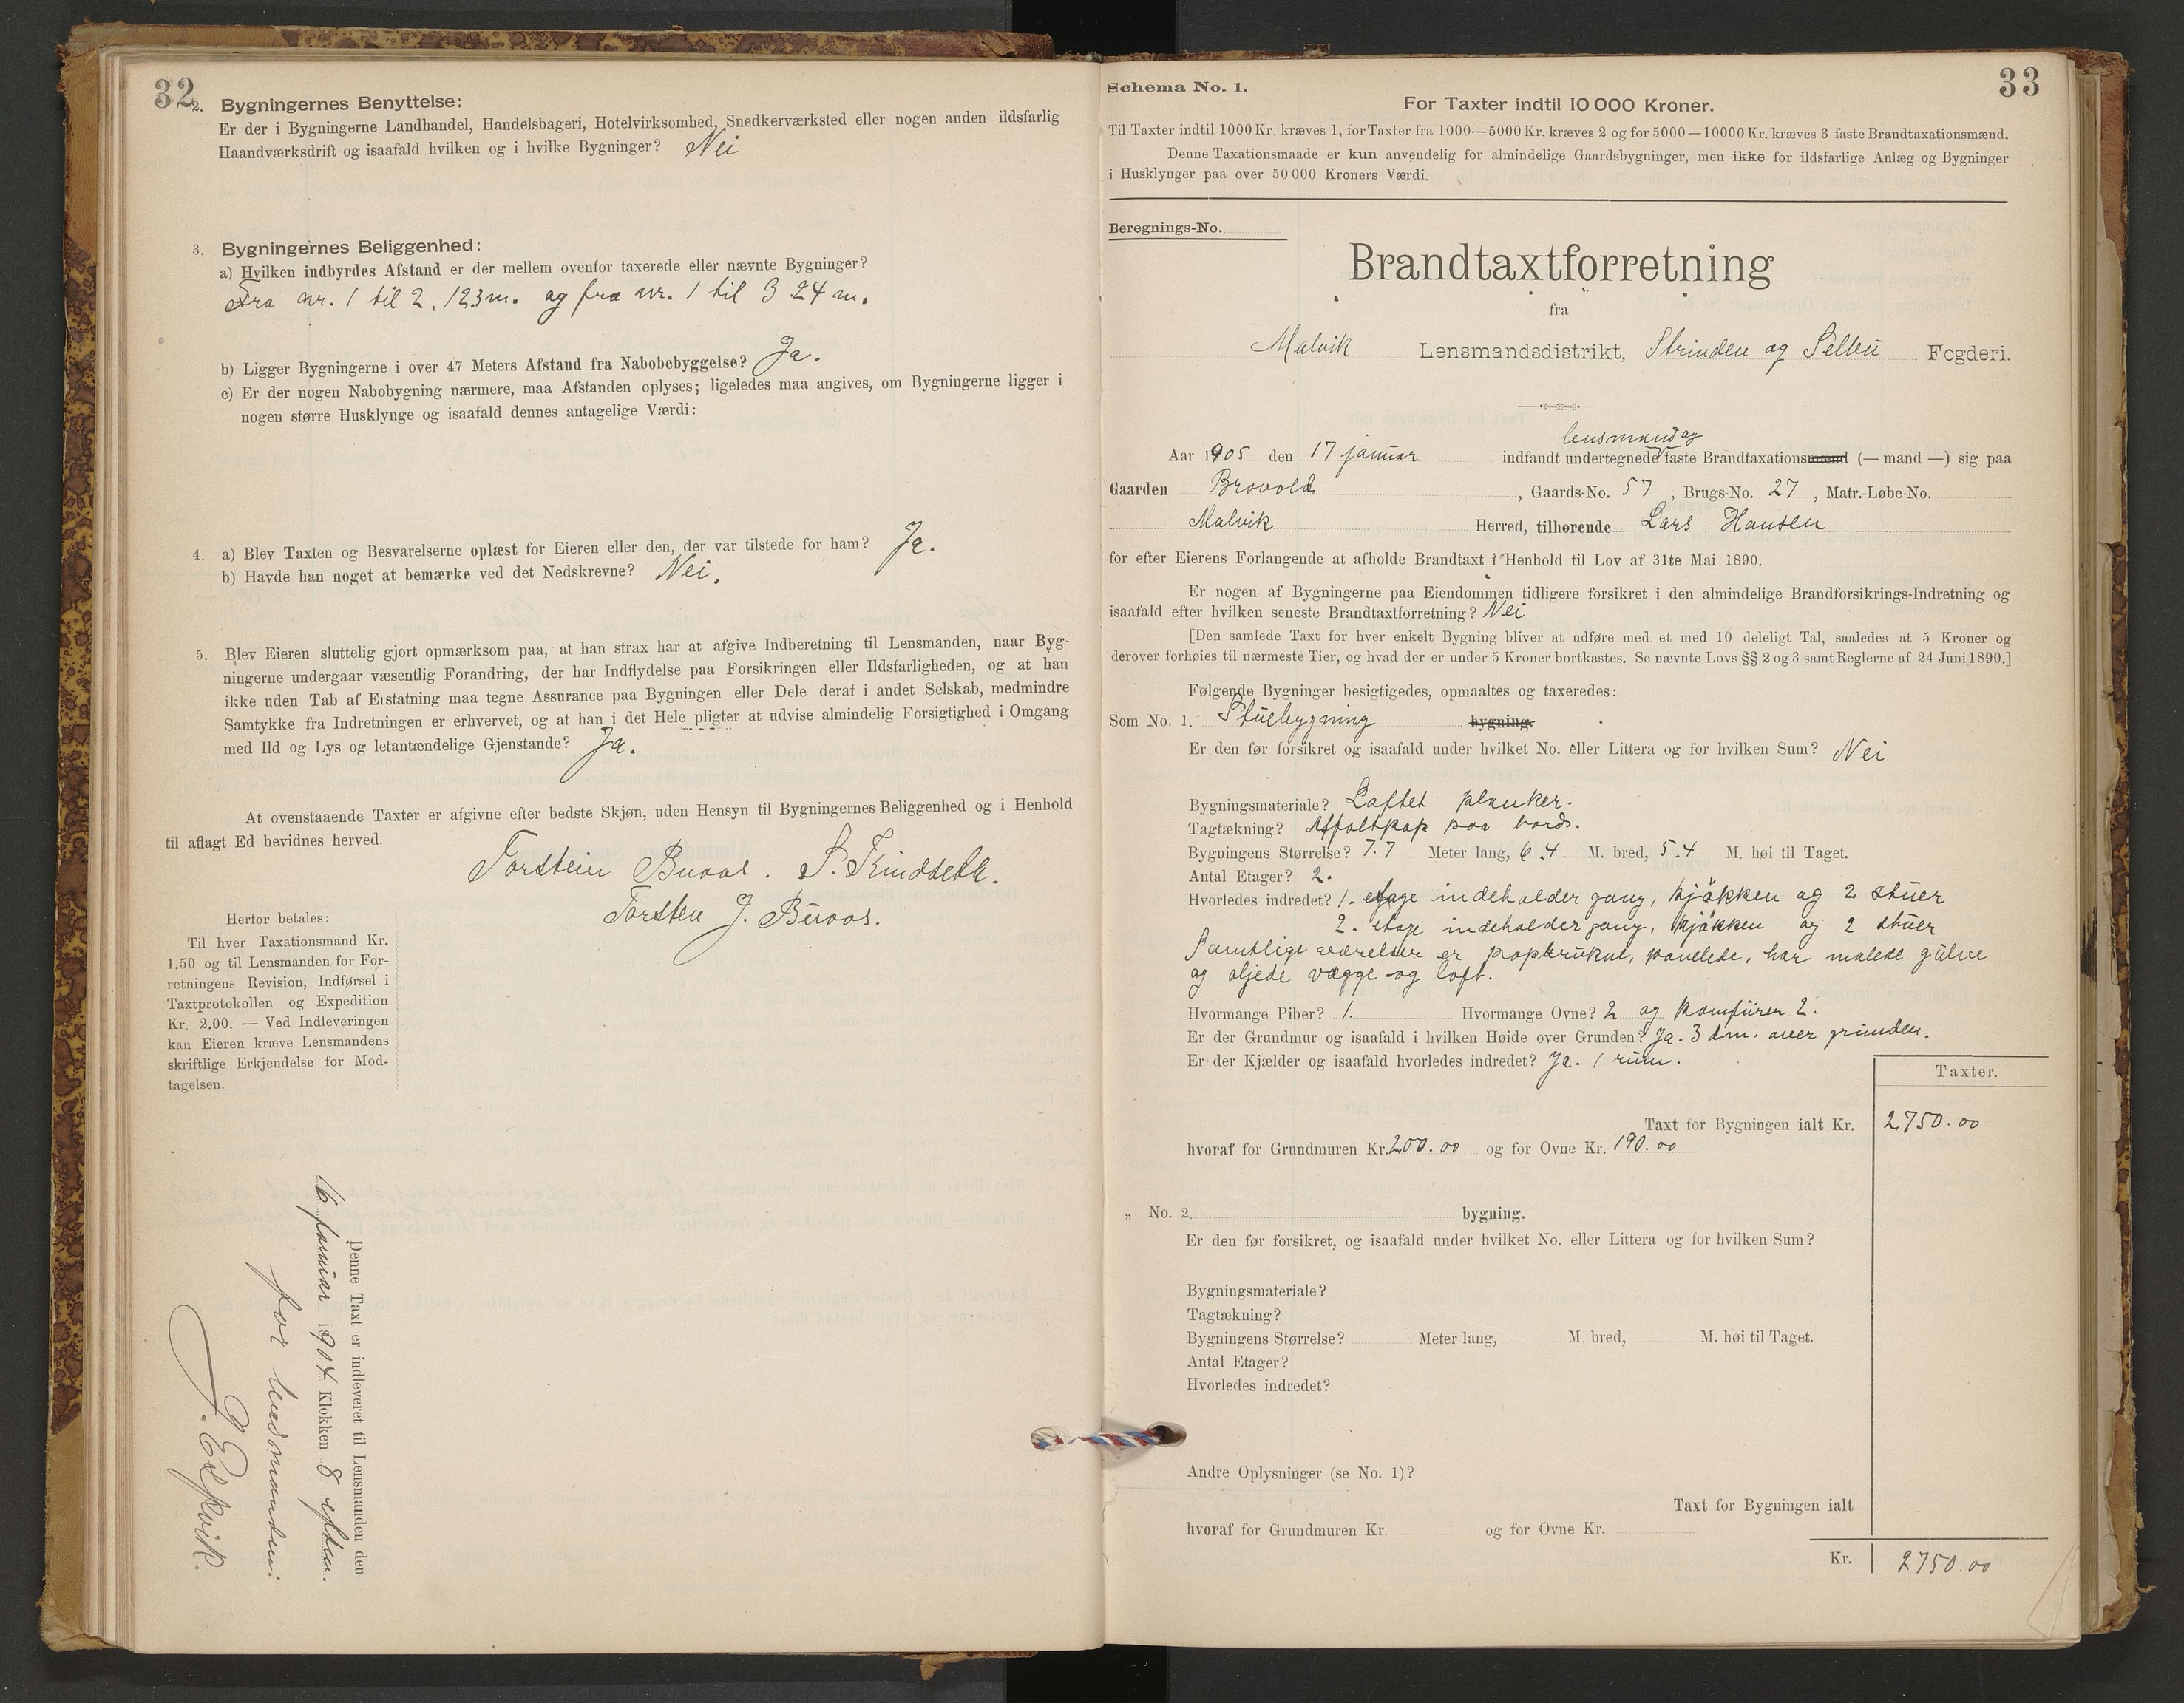 32
2. Bygningernes Benyttelse:
Er der i Bygningerne Landhandel, Handelsbageri, Hotelvirksomhed, Snedkerværksted eller nogen anden ildsfarlig
Haandværksdrift og isaafald hvilken og i hvilke Bygninger? Nei
3. Bygningernes Beliggenhed:
a) Hvilken indbyrdes Afstand er der mellem ovenfor taxerede eller nævnte Bygninger?
Fra nr. 1 til 2, 123 m. og fra nr. 1 til 3 24 m.
b) Ligger Bygningerne i over 47 Meters Afstand fra Nabobebyggelse? Ja.
c) Er der nogen Nabobygning nærmere, maa Afstanden oplyses; ligeledes maa angives, om Bygningerne ligger i
nogen større Husklynge og isaafald dennes antagelige Værdi:
4. a) Blev Taxten og Besvarelserne oplæst for Eieren eller den, der var tilstede for ham? Ja.
b) Havde han noget at bemærke ved det Nedskrevne? Nei.
5. Blev Eieren sluttelig gjort opmærksom paa, at han strax har at afgive Indberetning til Lensmanden, naar Byg-
ningerne undergaar væsentlig Forandring, der har Indflydelse paa Forsikringen eller Ildsfarligheden, og at han
ikke uden Tab af Erstatning maa tegne Assurance paa Bygningen eller Dele deraf i andet Selskab, medmindre
Samtykke fra Indretningen er erhvervet, og at han i det Hele pligter at udvise almindelig Forsigtighed i Omgang
med Ild og Lys og letantændelige Gjenstande? Ja.
At ovenstaaende Taxter er afgivne efter bedste Skjøn, uden Hensyn til Bygningernes Beliggenhed og i Henhold
til aflagt Ed bevidnes herved.
Torstein Buaas. S. Kindseth.
Torsten J. Buaas.
Herfor betales:
Til hver Taxationsmand Kr.
1.50 og til Lensmanden for For-
retningens Revision, Indførsel i
Taxtprotokollen og Expedition
Kr. 2.00. — Ved Indleveringen
kan Eieren kræve Lensmandens
skriftlige Erkjendelse for Mod-
tagelsen.
Denne Taxt er indleveret til Lensmanden den
16 januar 1904 Klokken 8 efterm.
for lensmanden:
J.
33
Schema No. 1.
For Taxter indtil 10 000 Kroner.
Til Taxter indtil 1000 Kr. kræves 1, for Taxter fra 1000—5000 Kr. kræves 2 og for 5000—10000 Kr. kræves 3 faste Brandtaxationsmænd.
Denne Taxationsmaade er kun anvendelig for almindelige Gaardsbygninger, men ikke for ildsfarlige Anlæg og Bygninger
i Husklynger paa over 50 000 Kroners Værdi.
Beregnings-No.
Brandtaxtforretning
fra
Malvik Lensmandsdistrikt, Strinden og Selbu Fogderi.
lensmand og
Aar 1905 den 17 januar indfandt undertegnede faste Brandtaxationsmænd (— mand —) sig paa
Gaarden Brovold, Gaards-No. 57, Brugs-No. 27, Matr.-Løbe-No.
Malvik Herred, tilhørende Lars Hansen
for efter Eierens Forlangende at afholde Brandtaxt i Henhold til Lov af 31te Mai 1890.
Er nogen af Bygningerne paa Eiendommen tidligere forsikret i den almindelige Brandforsikrings-Indretning og
isaafald efter hvilken seneste Brandtaxtforretning? Nei
[Den samlede Taxt for hver enkelt Bygning bliver at udføre med et med 10 deleligt Tal, saaledes at 5 Kroner og
derover forhøies til nærmeste Tier, og hvad der er under 5 Kroner bortkastes. Se nævnte Lovs §§ 2 og 3 samt Reglerne af 24 Juni 1890.]
Følgende Bygninger besigtigedes, opmaaltes og taxeredes:
Som No. 1. Stuebygning bygning.
Er den før forsikret og isaafald under hvilket No. eller Littera og for hvilken Sum? Nei
Bygningsmateriale? Laftet planker.
Tagtækning? Asfaltpap paa bord.
Bygningens Størrelse? 7.7 Meter lang, 6.4 M. bred, 5.4 M. høi til Taget.
Antal Etager? 2.
Hvorledes indredet? 1. etage indeholder gang, kjøkken og 2 stuer
2. etage indeholder gang, kjøkken og 2 stuer
Samtlige værelser er paptrukne, panelede, har malede gulve
og oljede vægge og loft.
Hvormange Piber? 1. Hvormange Ovne? 2 og komfurer 2.
Er der Grundmur og isaafald i hvilken Høide over Grunden? Ja. 3 dm. over grunden.
Er der Kjælder og isaafald hvorledes indredet? Ja. 1 rum.
Taxter.
Taxt for Bygningen ialt Kr. 2750.00
hvoraf for Grundmuren Kr. 200.00 og for Ovne Kr. 190.00
„ No. 2. bygning.
Er den før forsikret, og isaafald under hvilket No. eller Littera og for hvilken Sum?
Bygningsmateriale?
Tagtækning?
Bygningens Størrelse? Meter lang, M. bred, M. høi til Taget.
Antal Etager?
Hvorledes indredet?
Andre Oplysninger (se No. 1)?
Taxt for Bygningen ialt
hvoraf for Grundmuren Kr. og for Ovne Kr.
Kr. 2750.00